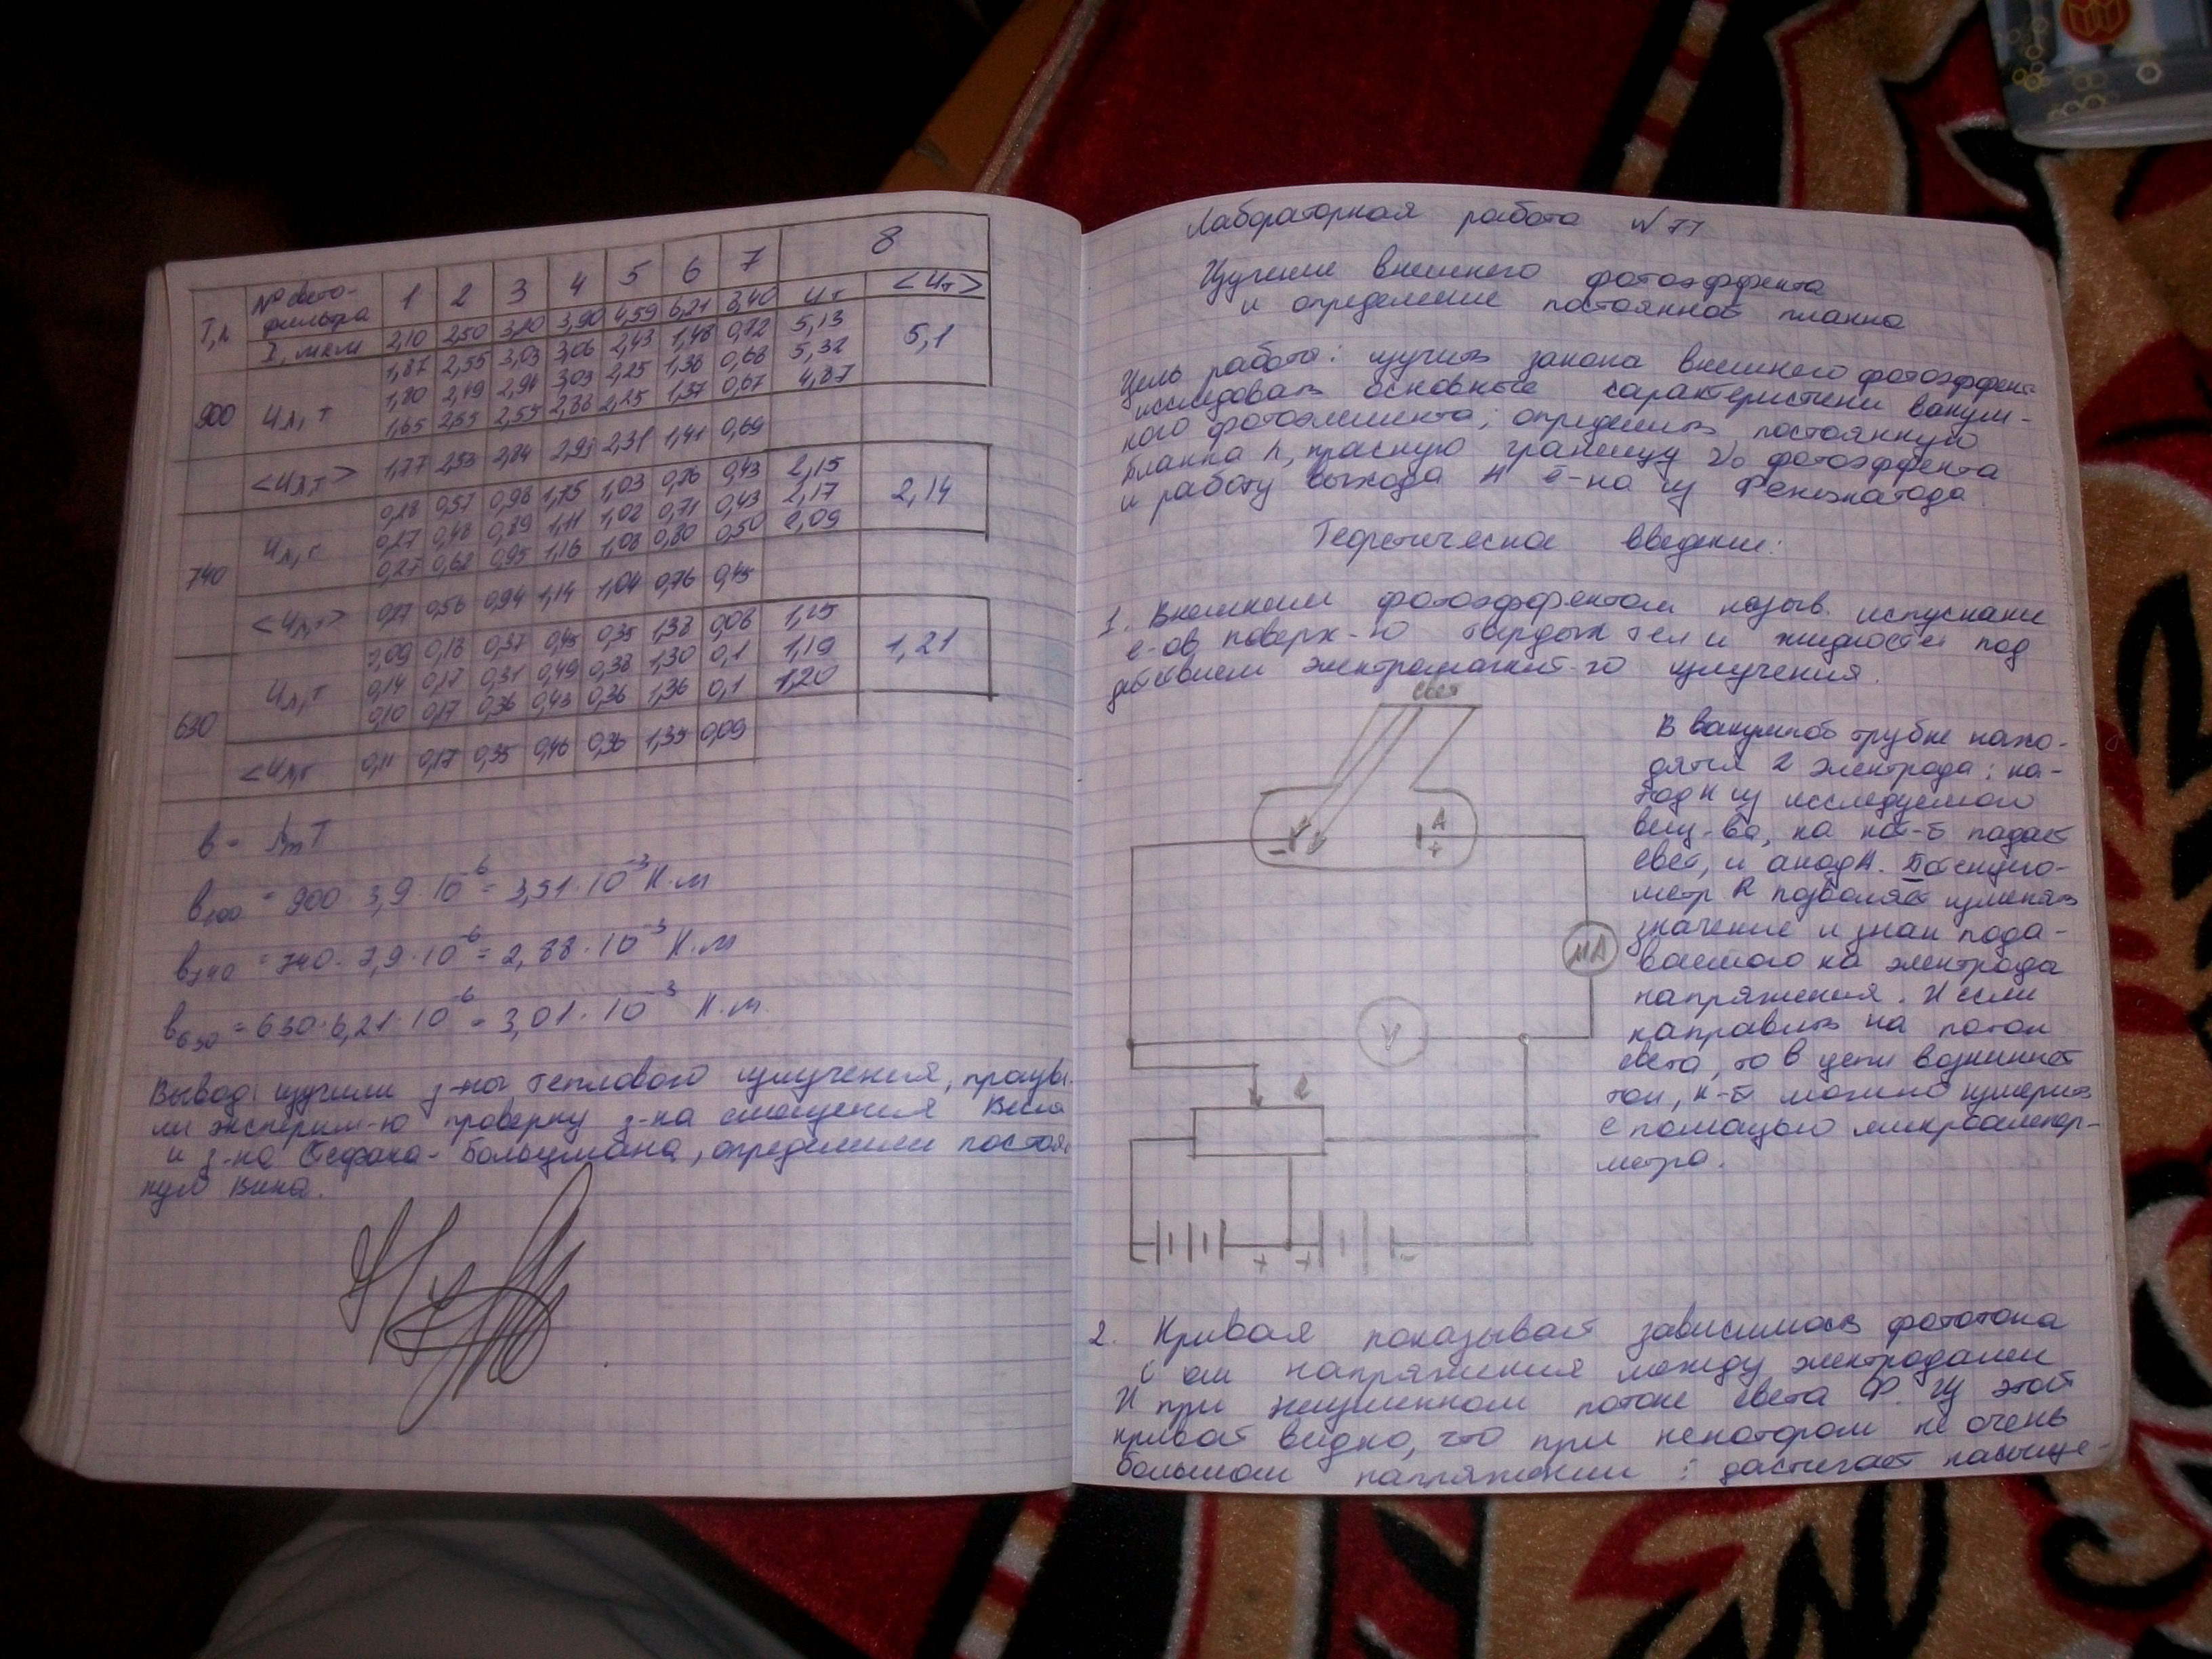 T, К № свето- 1 2 3 4 5 6 7 8
фильтра
λ, мкм 2,10 2,50 3,20 3,90 4,59 6,21 8,40 Uт <Uт>
900 Uλ,т 1,87 2,55 3,03 3,06 2,43 1,48 0,72 5,13 5,1
1,80 2,49 2,94 3,03 2,25 1,38 0,68 5,32
1,65 2,55 2,55 2,88 2,25 1,37 0,67 4,87
<Uλ,т> 1,77 2,53 2,84 2,91 2,31 1,41 0,69
740 Uλ,т 0,28 0,57 0,98 1,15 1,03 0,76 0,43 2,15 2,14
0,27 0,48 0,89 1,11 1,02 0,71 0,43 2,17
0,27 0,62 0,95 1,16 1,08 0,80 0,50 2,09
<Uλ,т> 0,27 0,56 0,94 1,14 1,04 0,76 0,45
630 Uλ,т 0,09 0,18 0,37 0,45 0,35 1,38 0,08 1,25 1,21
0,14 0,17 0,31 0,49 0,38 1,30 0,1 1,19
0,10 0,17 0,36 0,43 0,36 1,36 0,1 1,20
<Uλ,т 0,11 0,17 0,35 0,46 0,36 1,35 0,09
b = λm T
b900 = 900 · 3,9 · 10⁻⁶ = 3,51 · 10⁻³ К·м
b740 = 740 · 3,9 · 10⁻⁶ = 2,88 · 10⁻³ К·м
b630 = 630 · 6,21 · 10⁻⁶ = 3,01 · 10⁻³ К·м.
Вывод: изучили з-ны теплового излучения, произве-
ли эксперим-ю проверку з-на смещения Вина
и з-на Стефана-Больцмана, определили постоян
ную Вина.
Лабораторная работа № 77
Изучение внешнего фотоэффекта
и определение постоянной планка
Цель работы: изучить законы внешнего фотоэффект
исследовать основные характеристики вакуум-
ного фотоэлемента; определить постоянную
Планка h, красную границу ν₀ фотоэффекта
и работу выхода A e̅-на из Фотокатода.
Теоретическое введение:
1. Внешним фотоэффектом назыв. испускание
е-ов поверх-ю твердых тел и жидкостей под
действием электромагнит-го излучения.
свет
В вакуумной трубке нахо-
дятся 2 электрода: ка-
тод К из исследуемого
вещ-ва, на кот-й падает
свет, и анод А. Потенцио-
метр R позволяет изменять
значение и знак пода-
ваемого на электрода
напряжения. И если
направить на поток
света, то в цепи возникнет
ток, к-й можно измерить
с помощью микроампер-
метра.
A
− +
μA
V
R
+ + −
2. Кривая показывает зависимость фототока
i от напряжения между электродами
И при неизменном потоке света Ф. Из этой
кривой видно, что при некотором не очень
большом напряжении i достигает насыще-